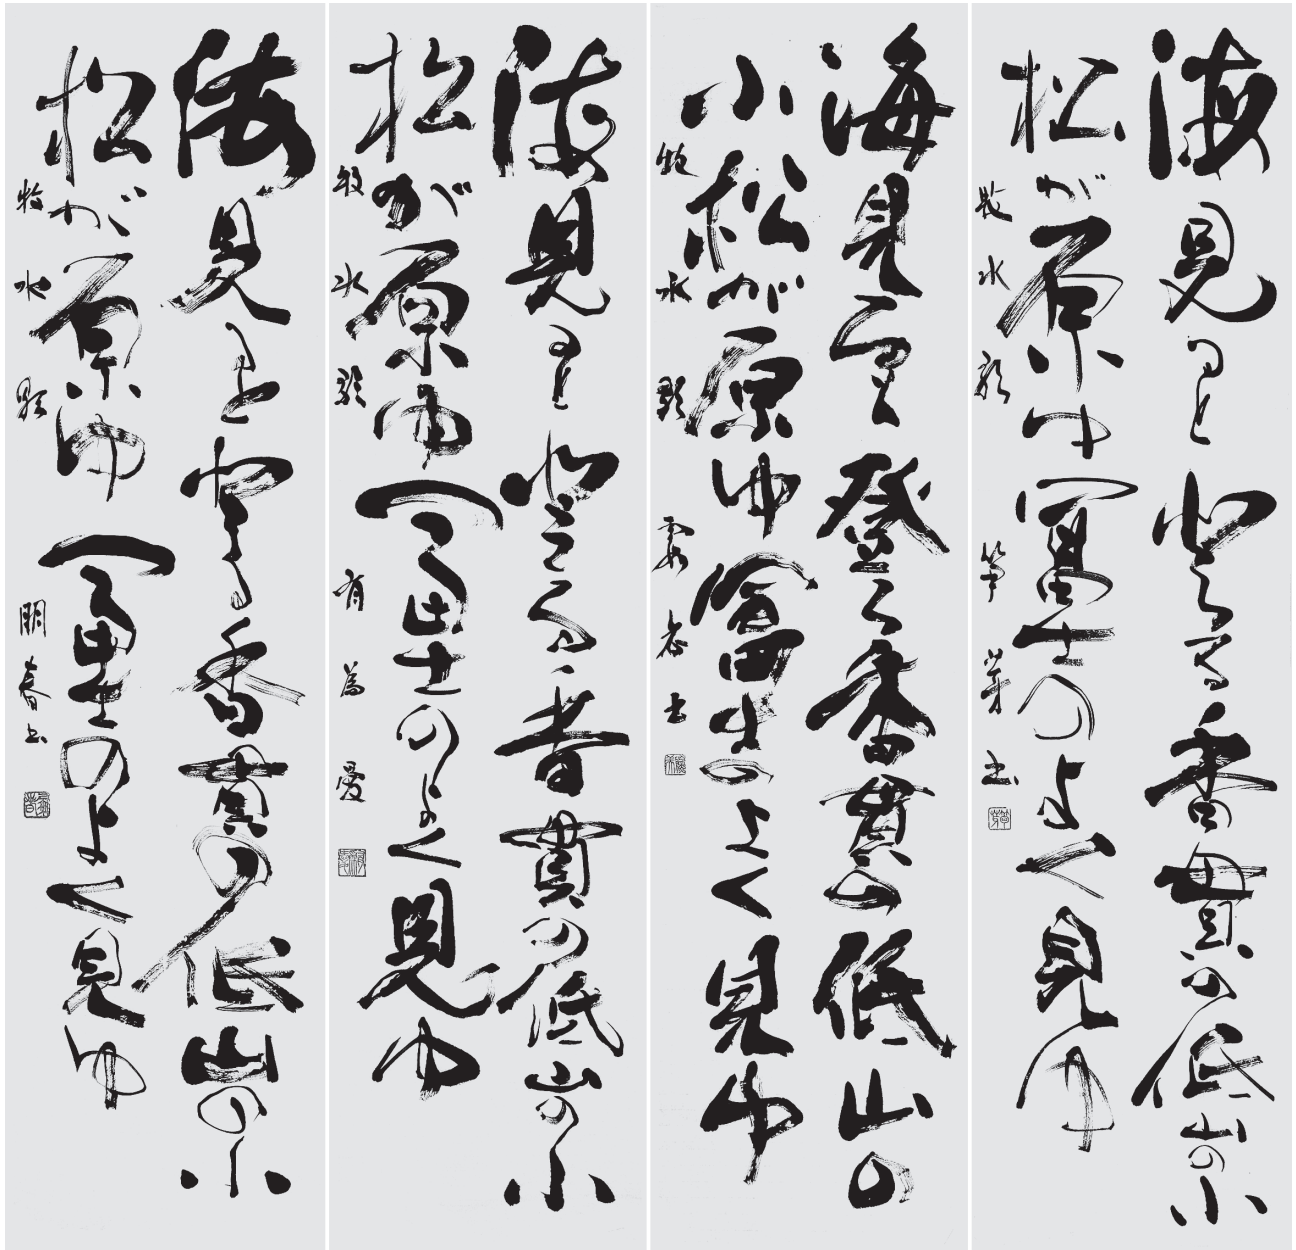 海見ると登る香貫の低山の小
松が原ゆ富士のよく見ゆ
牧水歌 書
海見ると登る香貫の低山の
小松が原ゆ富士のよく見ゆ
牧水歌 書
海見ると登る香貫の低山の小
松が原ゆ富士のよく見ゆ
牧水歌 有為愛
海見ると登る香貫の低山の小
松が原ゆ富士のよく見ゆ
牧水歌 明春書